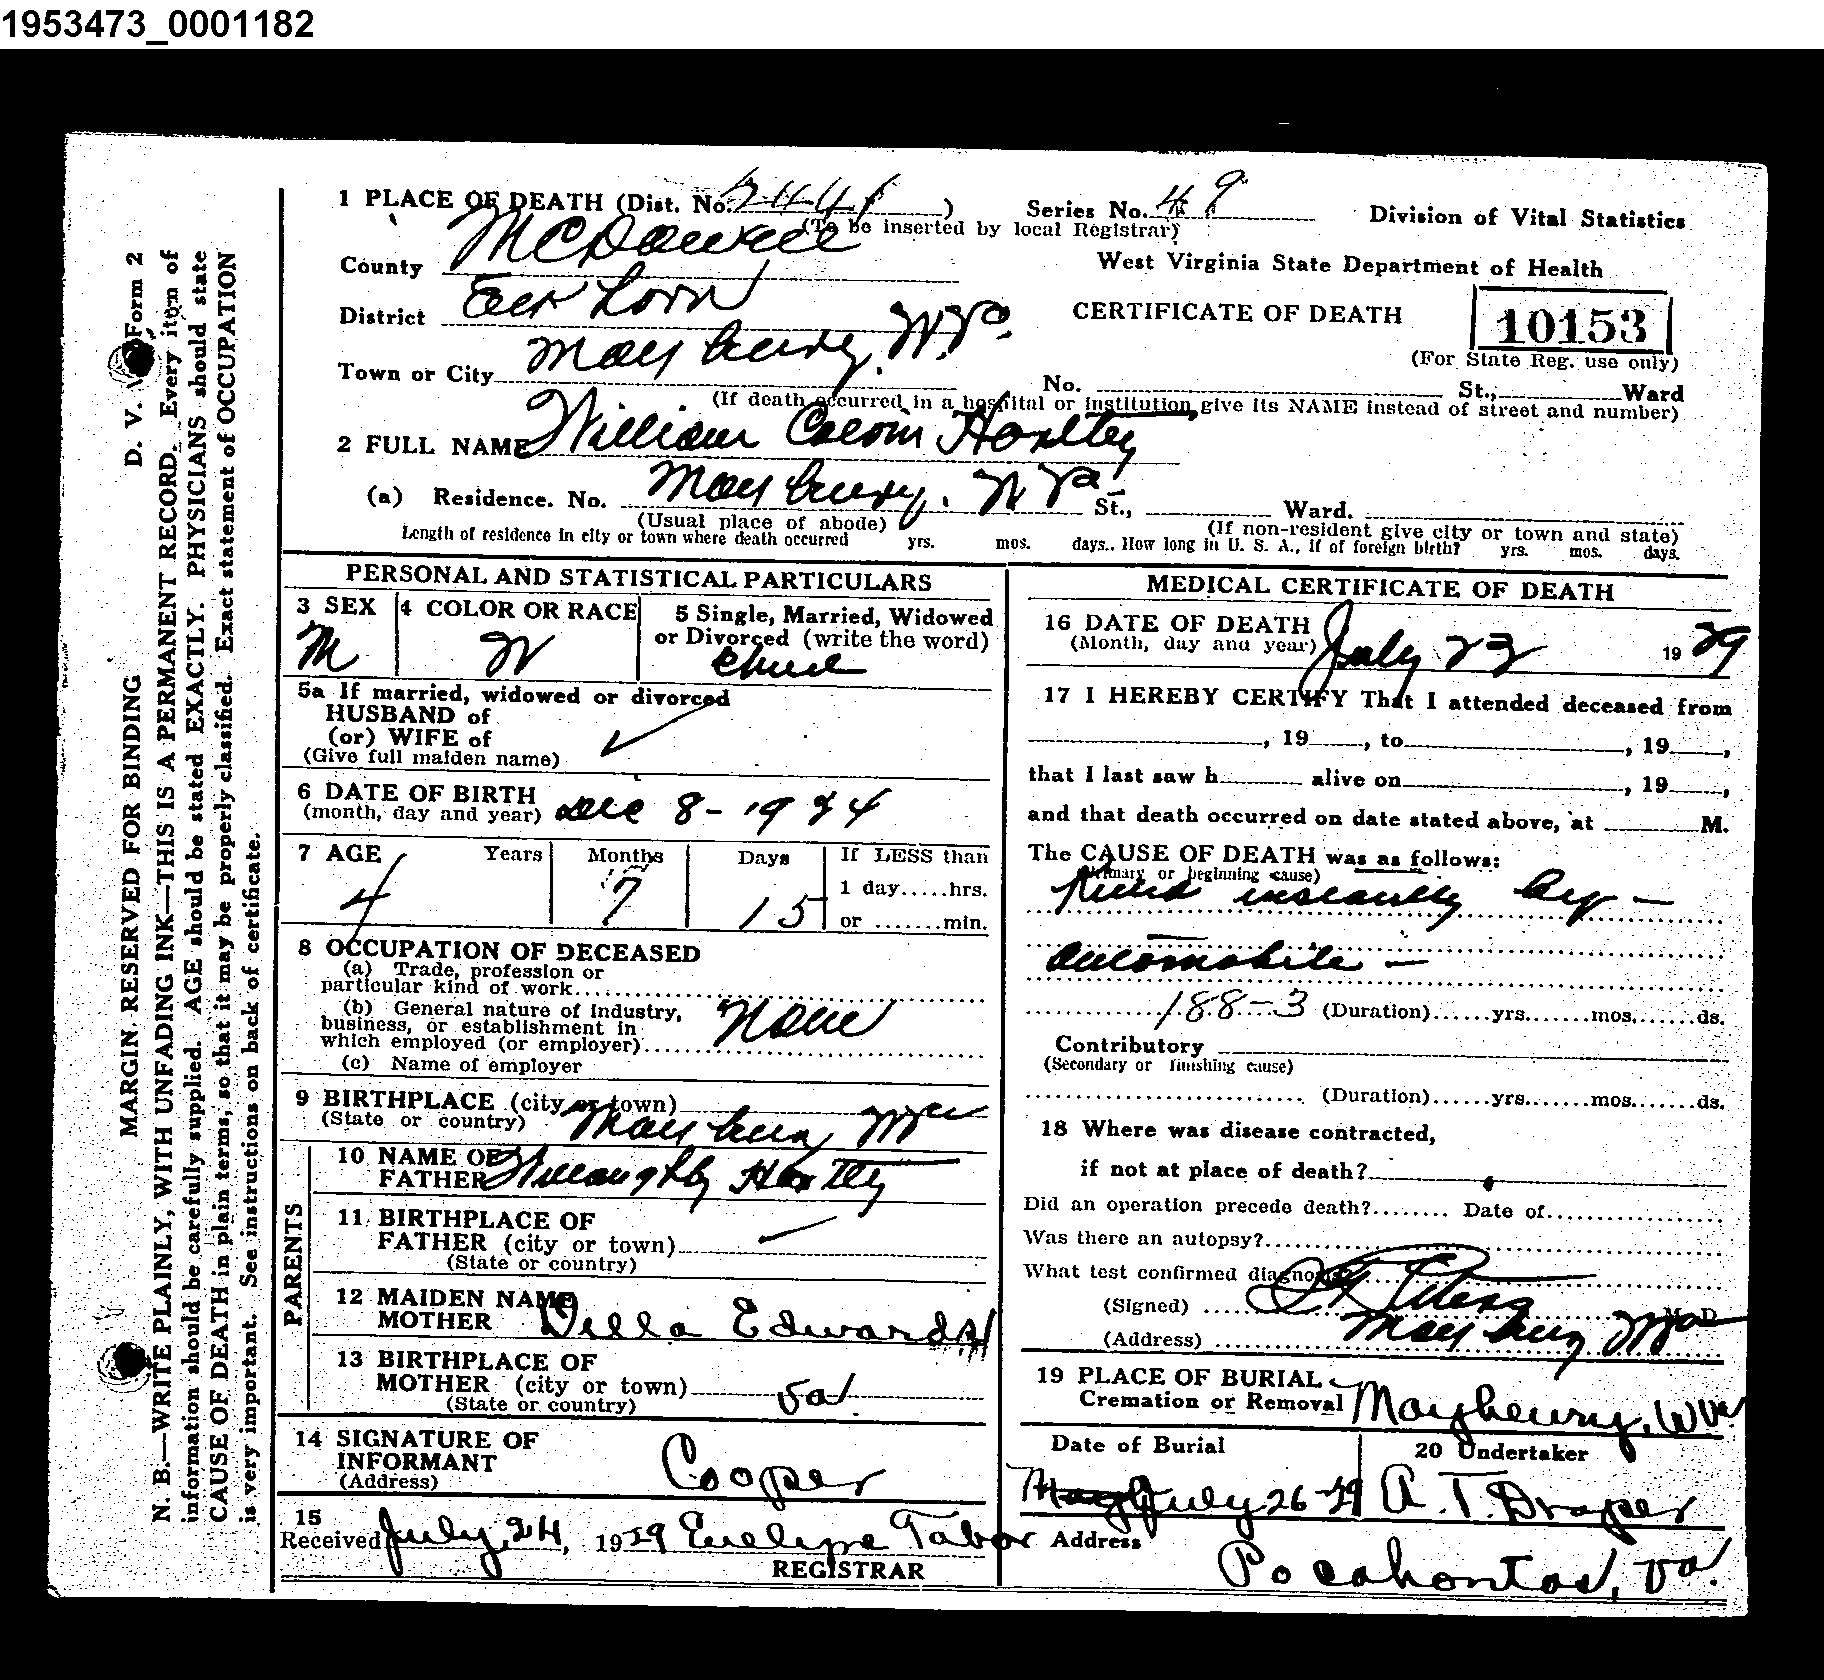 1953473_0001182
1 PLACE OF DEATH (Dist. No. 2441) Series No. 49 Division of Vital Statistics
(To be inserted by local Registrar)
County McDowell West Virginia State Department of Health
District Elk Horn CERTIFICATE OF DEATH 10153
(For State Reg. use only)
Town or City Maybeury, W. Va. No. St., Ward
(If death occurred in a hospital or institution, give its NAME instead of street and number)
2 FULL NAME William Hartley
(a) Residence. No. Maybeury, W Va St., Ward.
(Usual place of abode) (If non-resident give city or town and state)
Length of residence in city or town where death occurred yrs. mos. days.. How long in U. S. A., if of foreign birth? yrs. mos. days.
PERSONAL AND STATISTICAL PARTICULARS
3 SEX 4 COLOR OR RACE 5 Single, Married, Widowed
or Divorced (write the word)
M W Child
5a If married, widowed or divorced
HUSBAND of
(or) WIFE of
(Give full maiden name)
6 DATE OF BIRTH
(month, day and year) Dec 8-1924
7 AGE Years Months Days If LESS than
1 day.....hrs.
4 7 15 or .......min.
8 OCCUPATION OF DECEASED
(a) Trade, profession or
particular kind of work
(b) General nature of industry,
business, or establishment in
which employed (or employer) None
(c) Name of employer
9 BIRTHPLACE (city or town)
(State or country) Maybeury WVa
PARENTS
10 NAME OF
FATHER Willoughby Hartley
11 BIRTHPLACE OF
FATHER (city or town)
(State or country)
12 MAIDEN NAME
MOTHER Della Edwards
13 BIRTHPLACE OF
MOTHER (city or town) Va.
(State or country)
14 SIGNATURE OF
INFORMANT Cooper
(Address)
15
Received July 24, 1929 Evelyne Tabor
REGISTRAR
MEDICAL CERTIFICATE OF DEATH
16 DATE OF DEATH
(Month, day and year) July 23 1929
17 I HEREBY CERTIFY That I attended deceased from
, 19 , to , 19 ,
that I last saw h alive on , 19 ,
and that death occurred on date stated above, at M.
The CAUSE OF DEATH was as follows:
(Primary or beginning cause)
Killed instantly by —
automobile —
188-3 (Duration)......yrs.......mos.......ds.
Contributory
(Secondary or finishing cause)
(Duration)......yrs.......mos.......ds.
18 Where was disease contracted,
if not at place of death?
Did an operation precede death?........ Date of
Was there an autopsy?
What test confirmed diagnosis?
(Signed) M. D.
(Address) Maybeury WVa
19 PLACE OF BURIAL
Cremation or Removal Maybeury, W Va
Date of Burial 20 Undertaker
May July 26-29 A. T. Draper
Address
Pocahontas, Va.
D. V. Form 2
MARGIN RESERVED FOR BINDING
N. B.—WRITE PLAINLY, WITH UNFADING INK—THIS IS A PERMANENT RECORD. Every item of
information should be carefully supplied. AGE should be stated EXACTLY. PHYSICIANS should state
CAUSE OF DEATH in plain terms, so that it may be properly classified. Exact statement of OCCUPATION
is very important. See instructions on back of certificate.